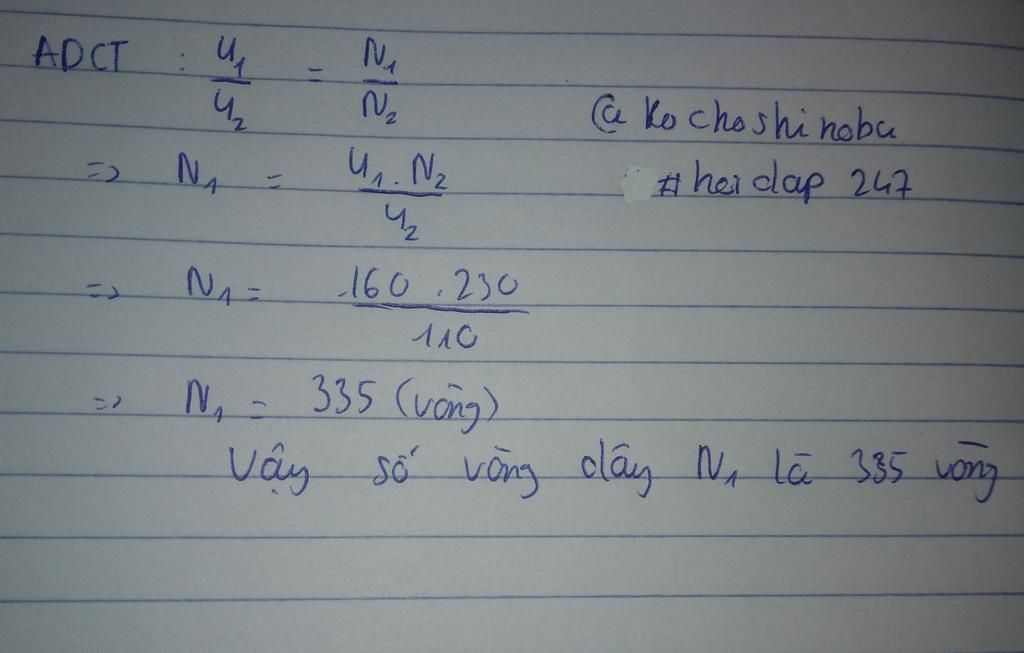 ADCT : U₁/U₂ = N₁/N₂
@Kochoshinobu
=> N₁ = U₁.N₂/U₂
#hoidap 247
=> N₁ = 160.230/110
=> N₁ = 335 (vòng)
Vậy số vòng dây N₁ là 335 vòng